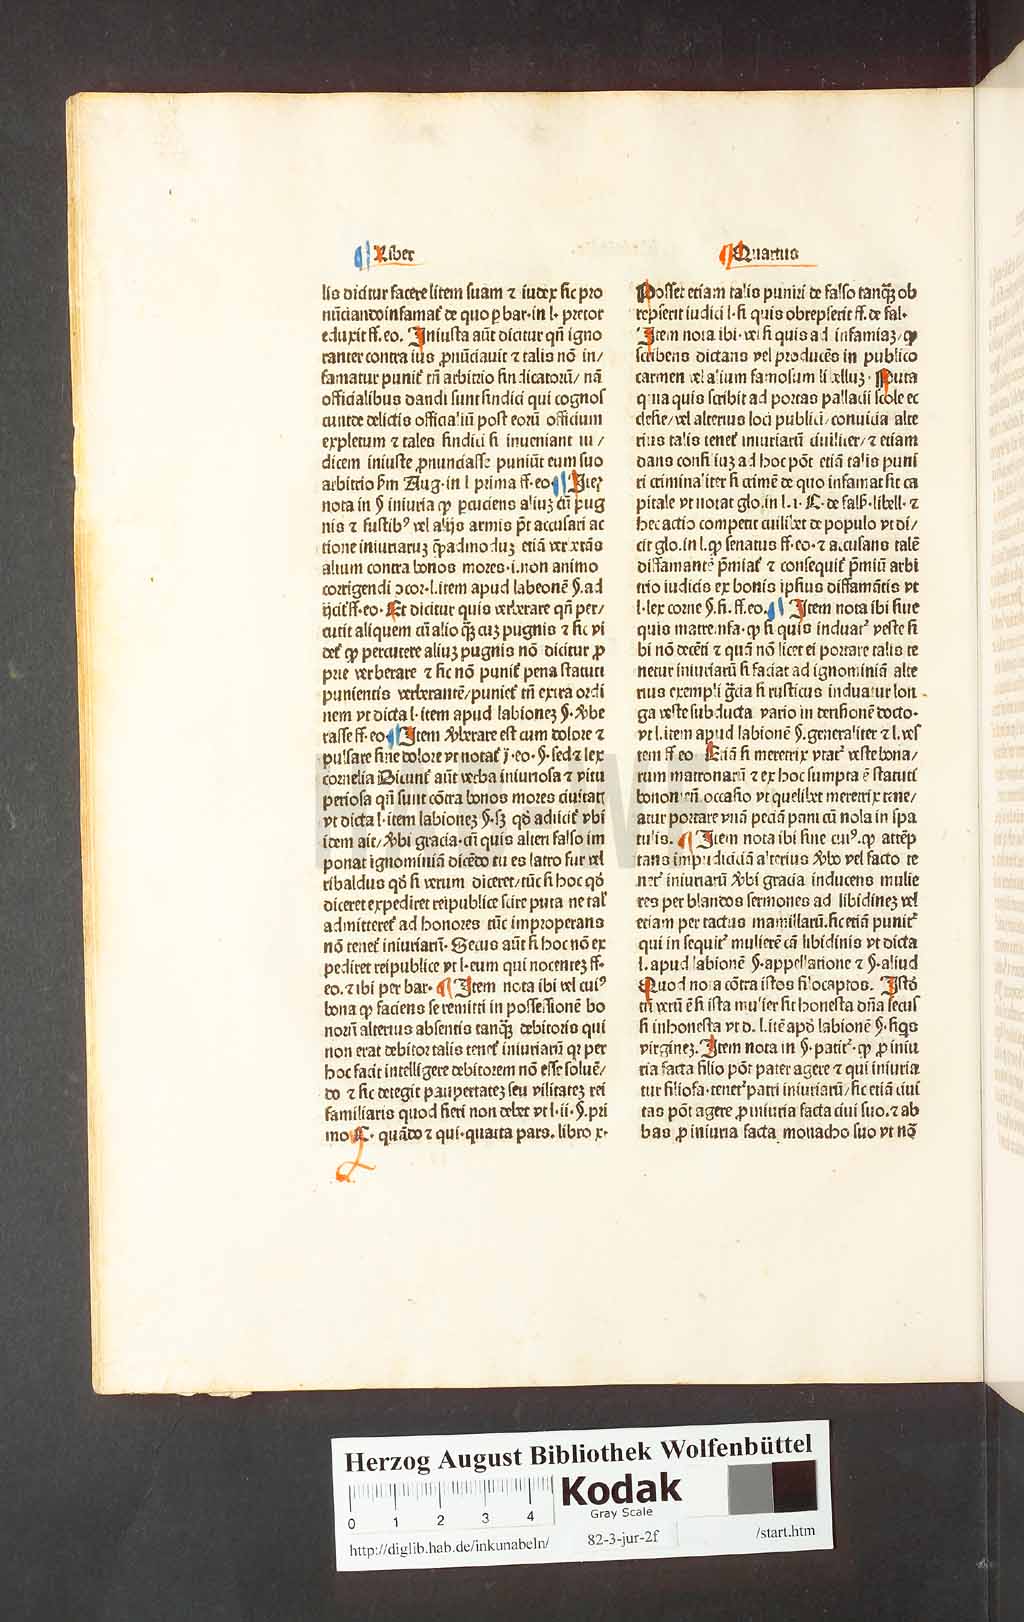 Liber
Quartus
lis dicitur facere litem suam ⁊ iudex sic pro
nūciando infamat᷑ de quo ꝑ bar· in l· pretor
eduxit ff. eo. Iniusta aūt dicitur qn̄ igno
ranter contra ius ꝓnūciauit ⁊ talis nō in/
famatur punit᷑ tn̄ arbitrio sindicatorū/ nā
officialibus dandi sunt sindici qui cognos
cunt de delictis officialiū post eorū officium
expletum ⁊ tales sindici si inueniant iu/
dicem iniuste ꝓnunciasse puniūt eum suo
arbitrio ẜm Aug· in l prima ff. eo· Iteꝝ
nota in § iniuria ꝙ ꝑcuciens aliuꝫ cū pug
nis ⁊ fustibꝰ vel alijs armis pt̄ accusari ac
tione iniuriaruꝫ
alium contra bonos mores· i. non animo
corrigendi ↄcor· l. item apud labeonē §. ad
ijcit᷑ ff· eo· Et dicitur quis verberare qn̄ per/
cutit aliquem cū alio qꝫ cuꝫ pugnis ⁊ sic vi
det᷑ ꝙ percutere aliuꝫ pugnis nō dicitur ꝓ
prie verberare ⁊ sic nō punit᷑ pena statuti
punientis verberantē/ puniet᷑ tn̄ extra ordi
nem vt dicta l· item apud labioneꝫ §· v̓be
rasse ff. eo· Item v̓berare est cum dolore ⁊
pulsare sine dolore vt notat᷑ j̄· eo· §· sed ⁊ lex
cornelia Dicunt᷑ aūt verba iniuriosa ⁊ vitu
periosa qn̄ sunt cōtra bonos mores ciuitatꝭ
vt dicta l· item labioneꝫ §· sꝫ qd̓ adiicit᷑ vbi
idem ait/ v̓bi gracia· cū quis alteri falso im
ponat ignominiā dicēdo tu es latro fur vel
ribaldus qd̓ si verum diceret/ tūc si hoc qd̓
diceret expediret reipublice scire puta ne tal᷑
admitteret᷑ ad honores tūc improperans
nō tenet᷑ iniuriarū· Secus aūt si hoc nō ex
pediret reipublice vt l· eum qui nocenteꝫ ff·
eo. ⁊ ibi per bar· Item nota ibi vel cuiꝰ
bona ꝙ faciens se remitti in possessionē bo
norū alterius absentis tanqꝫ debitoris qui
non erat debitor talis tenet᷑ iniuriarū qꝛ per
hoc facit intelligere debitorem nō esse soluē/
do ⁊ sic detegit paupertateꝫ seu vilitateꝫ rei
familiaris quod fieri non debet vt l· ii· §. pri
mo C· quādo ⁊ qui· quarta pars. libro x·
Posset etiam talis puniri de falso tanqꝫ ob
repserit iudici l· si quis obrepserit ff. de fal·
Item nota ibi· vel si quis ad infamiaꝫ/ ꝙ
scribens dictans vel producēs in publico
carmen vel alium famosum libelluꝫ· Puta
quia quis scribit ad portas pallacii scole ec
clesie/ vel alterius loci publici/ conuicia alte
rius talis tenet᷑ iniuriarū ciuiliter/ ⁊ etiam
dans consiliuꝫ ad hoc pōt etiā talis puni
ri criminaliter si crimē de quo infamat sit ca
pitale vt notat glo. in l. i· C· de fals̄· libell· ⁊
hec actio competit cuilibet de populo vt di/
cit glo. in l. ꝙ senatus ff· eo· ⁊ accusans talē
diffamantē p̄miat᷑ ⁊ consequit᷑ p̄miū arbi
trio iudicis ex bonis ipsius diffamātis vt
l· lex corne §. si. ff. eo. Item nota ibi siue
quis matre.nfa· ꝙ si quis induat᷑ veste si
bi nō decēti ⁊ quā nō licet ei portare talis te
netur iniuriarū si faciat ad ignominiā alte
rius exempli gr̄a si rusticus induatur lon
ga veste subducta vario in derisionē docto·
vt l. item apud labionē §. generaliter ⁊ l. ves
tem ff eo Etiā si meretrix vtat᷑ veste bona/
rum matronarū ⁊ ex hoc sumpta ē statuti
bononiēn̄. occasio vt quelibet meretrix tene/
atur portare vnā peciā pani cū nola in spa
tulis. Item nota ibi siue cuiꝰ. ꝙ attēp
tans impudiciciā alterius v̓bo vel facto te
net᷑ iniuriarū v̓bi gracia inducens mulie
res per blandos sermones ad libidineꝫ vel
etiam per tactus mamillarū. sic etiā punit᷑
qui insequit᷑ mulierē cā libidinis vt dicta
l. apud labionē §· appellatione ⁊ §· aliud
Quod nota cōtra istos filocaptos. Istō
tn̄ verū ē si ista mulier sit honesta dn̄a secus
si inhonesta vt d. l. itē apd̓ labionē §· siqs
virgineꝫ. Item nota in §· patit᷑· ꝙ ꝓ iniu
ria facta filio pōt pater agere ⁊ qui iniuria
tur filiofa· tenet᷑ patri iniuriarū/ sic etiā ciui
tas pōt agere ꝓ iniuria facta ciui suo. ⁊ ab
bas ꝓ iniuria facta monacho suo vt nō
Herzog August Bibliothek Wolfenbüttel
0 1 2 3 4
Kodak
Gray Scale
http://diglib.hab.de/inkunabeln/ 82-3-jur-2f /start.htm